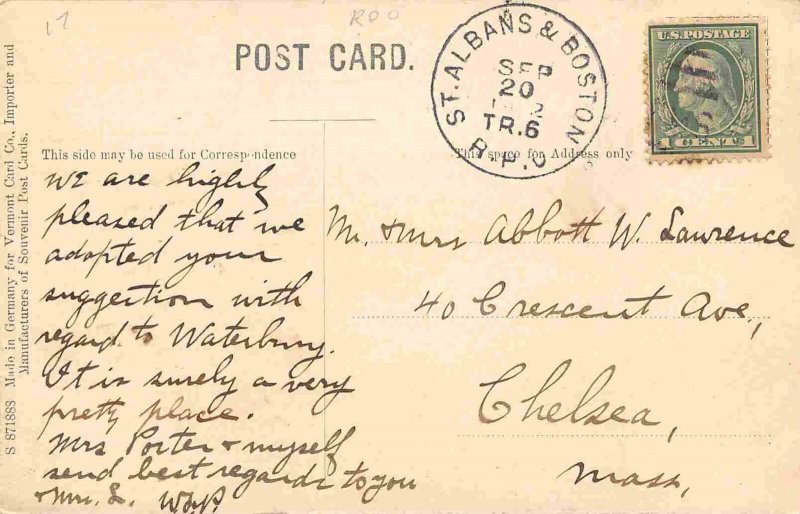 17
ROO
POST CARD.
ST. ALBANS & BOSTON
SEP
20
TR.6
R.P.O
U.S. POSTAGE
1 CENT 1
Made in Germany for Vermont Card Co., Importer and
Manufacturers of Souvenir Post Cards.
S 871888
This side may be used for Correspondence
This space for Address only
We are highly
pleased that we
adopted your
suggestion with
regard to Waterbury.
It is surely a very
pretty place.
Mrs Porter & myself
send best regards to you
& Mrs. L. W.H.P.
Mr. & Mrs Abbott W. Lawrence
40 Crescent Ave,
Chelsea,
Mass,